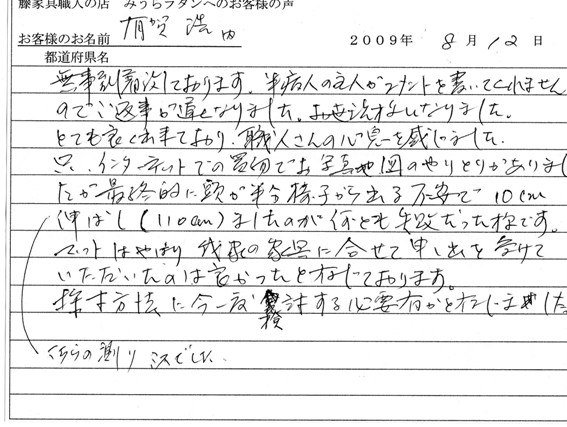 藤家具職人の店 みうらラタンへのお客様の声
お客様のお名前 有賀 浩 内 2009年 8月 12日
都道府県名
無事到着次しております。半病人の主人がコメントを書いてくれません
のでご返事が遅くなりました。お世話様になりました。
とても良く出来ており、職人さんの心意を感じました。
只、インターネットでの買物でお写真や図のやりとりがありまし
たが最終的に頭が半分椅子から出る不安で10cm
伸ばし(110cm)ましたのが何とも失敗だった様です。
マットはやはり我家の家具に合せて申し出を受けて
いただいたのは良かったと存じております。
採寸方法に今一度検討する必要有かと存じました
こちらの測りミスでした。